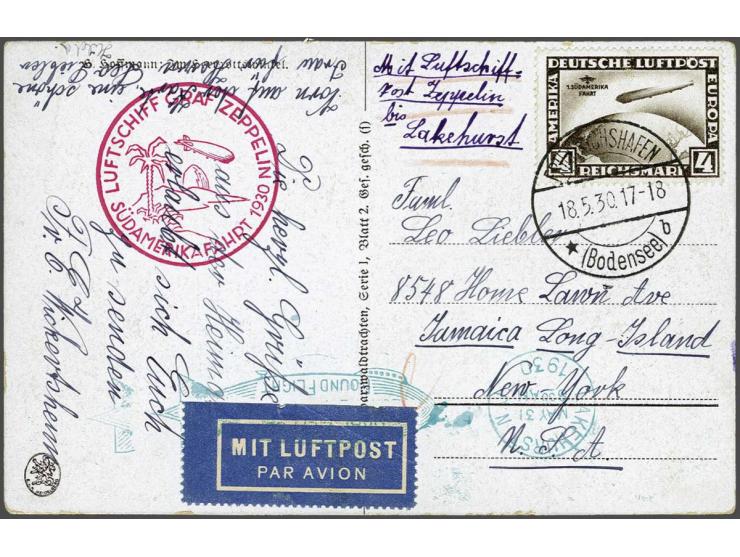 G. Hoffmann:
Mit Luftschiff-
Post Zeppelin
bis
Lakehurst
DEUTSCHE LUFTPOST
AMERIKA
EUROPA
1. SÜDAMERIKA
FAHRT
4
4
REICHSMARK
RICHSHAFEN
18.5.30.17-18
(Bodensee) b
LUFTSCHIFF GRAF ZEPPELIN
SÜDAMERIKAFAHRT 1930
Faml.
Leo Liebler
8548 Home Lawn Ave
Jamaica Long-Island
New-York
U.S.A.
Schwarzwaldtrachten, Serie I, Blatt 2. Ges. gesch. (f)
herzl. Grüße
aus der Heimat
erlaubt sich Euch
zu senden
eine schöne
Frau
ROUND FLIGHT
LAKEHURST N
MAY 31
1930
MIT LUFTPOST
PAR AVION